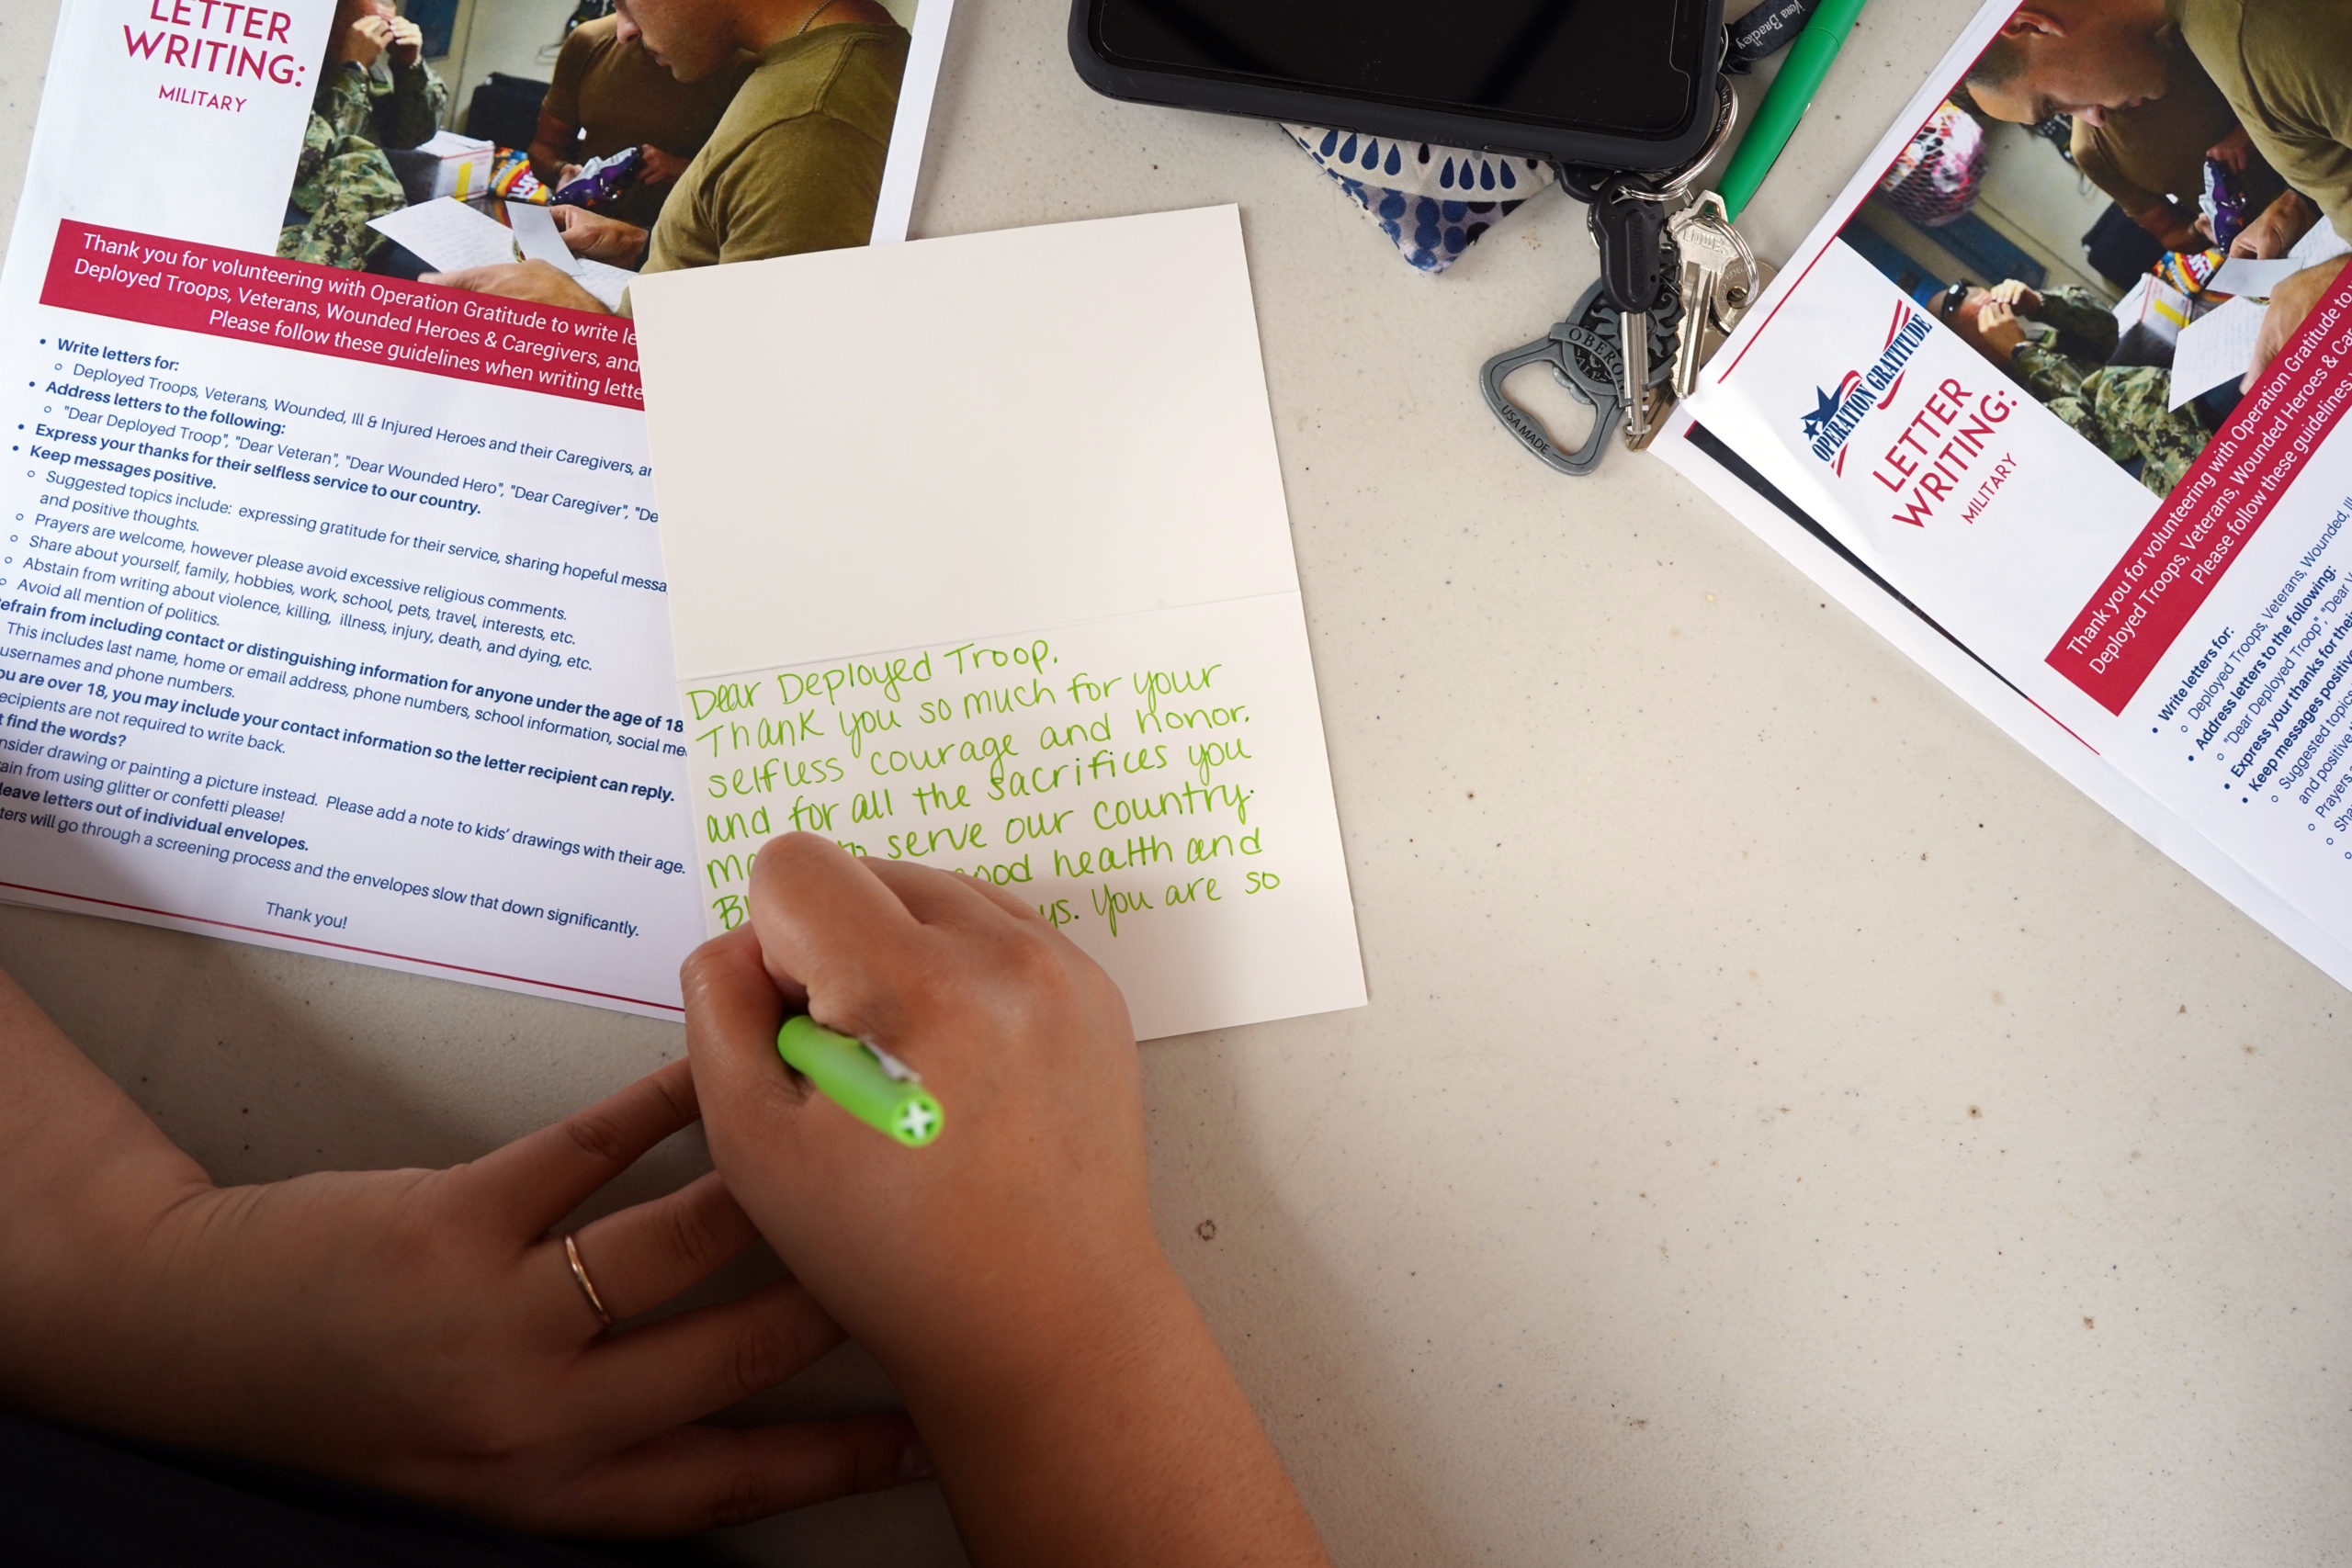 LETTER
WRITING:
MILITARY
Thank you for volunteering with Operation Gratitude to write
Deployed Troops, Veterans, Wounded Heroes & Caregivers, and
Please follow these guidelines when writing
• Write letters for:
○ Deployed Troops, Veterans, Wounded, Ill & Injured Heroes and their Caregivers,
• Address letters to the following:
○ "Dear Deployed Troop", "Dear Veteran", "Dear Wounded Hero", "Dear Caregiver",
• Express your thanks for their selfless service to our country.
• Keep messages positive.
○ Suggested topics include: expressing gratitude for their service, sharing hopeful
and positive thoughts.
○ Prayers are welcome, however please avoid excessive religious comments.
○ Share about yourself, family, hobbies, work, school, pets, travel, interests, etc.
○ Abstain from writing about violence, killing, illness, injury, death, and dying, etc.
○ Avoid all mention of politics.
efrain from including contact or distinguishing information for anyone under the age of 18
This includes last name, home or email address, phone numbers, school information, social
usernames and phone numbers.
ou are over 18, you may include your contact information so the letter recipient can reply.
ecipients are not required to write back.
find the words?
nsider drawing or painting a picture instead. Please add a note to kids' drawings with their age.
ain from using glitter or confetti please!
leave letters out of individual envelopes.
ters will go through a screening process and the envelopes slow that down significantly.
Thank you!
Dear Deployed Troop,
Thank you so much for your
selfless courage and honor.
and for all the sacrifices you
to serve our country.
good health and
You are so
Vera Bradley
OBERON
USA MADE
OPERATION GRATITUDE
LETTER
WRITING:
MILITARY
Thank you for volunteering with Operation Gratitude to
Deployed Troops, Veterans, Wounded Heroes &
Please follow these guidelines
• Write letters for:
○ Deployed Troops, Veterans, Wounded,
• Address letters to the following:
○ "Dear Deployed Troop", "Dear
• Express your thanks for their
• Keep messages positive
○ Suggested
and positive
○ Prayers